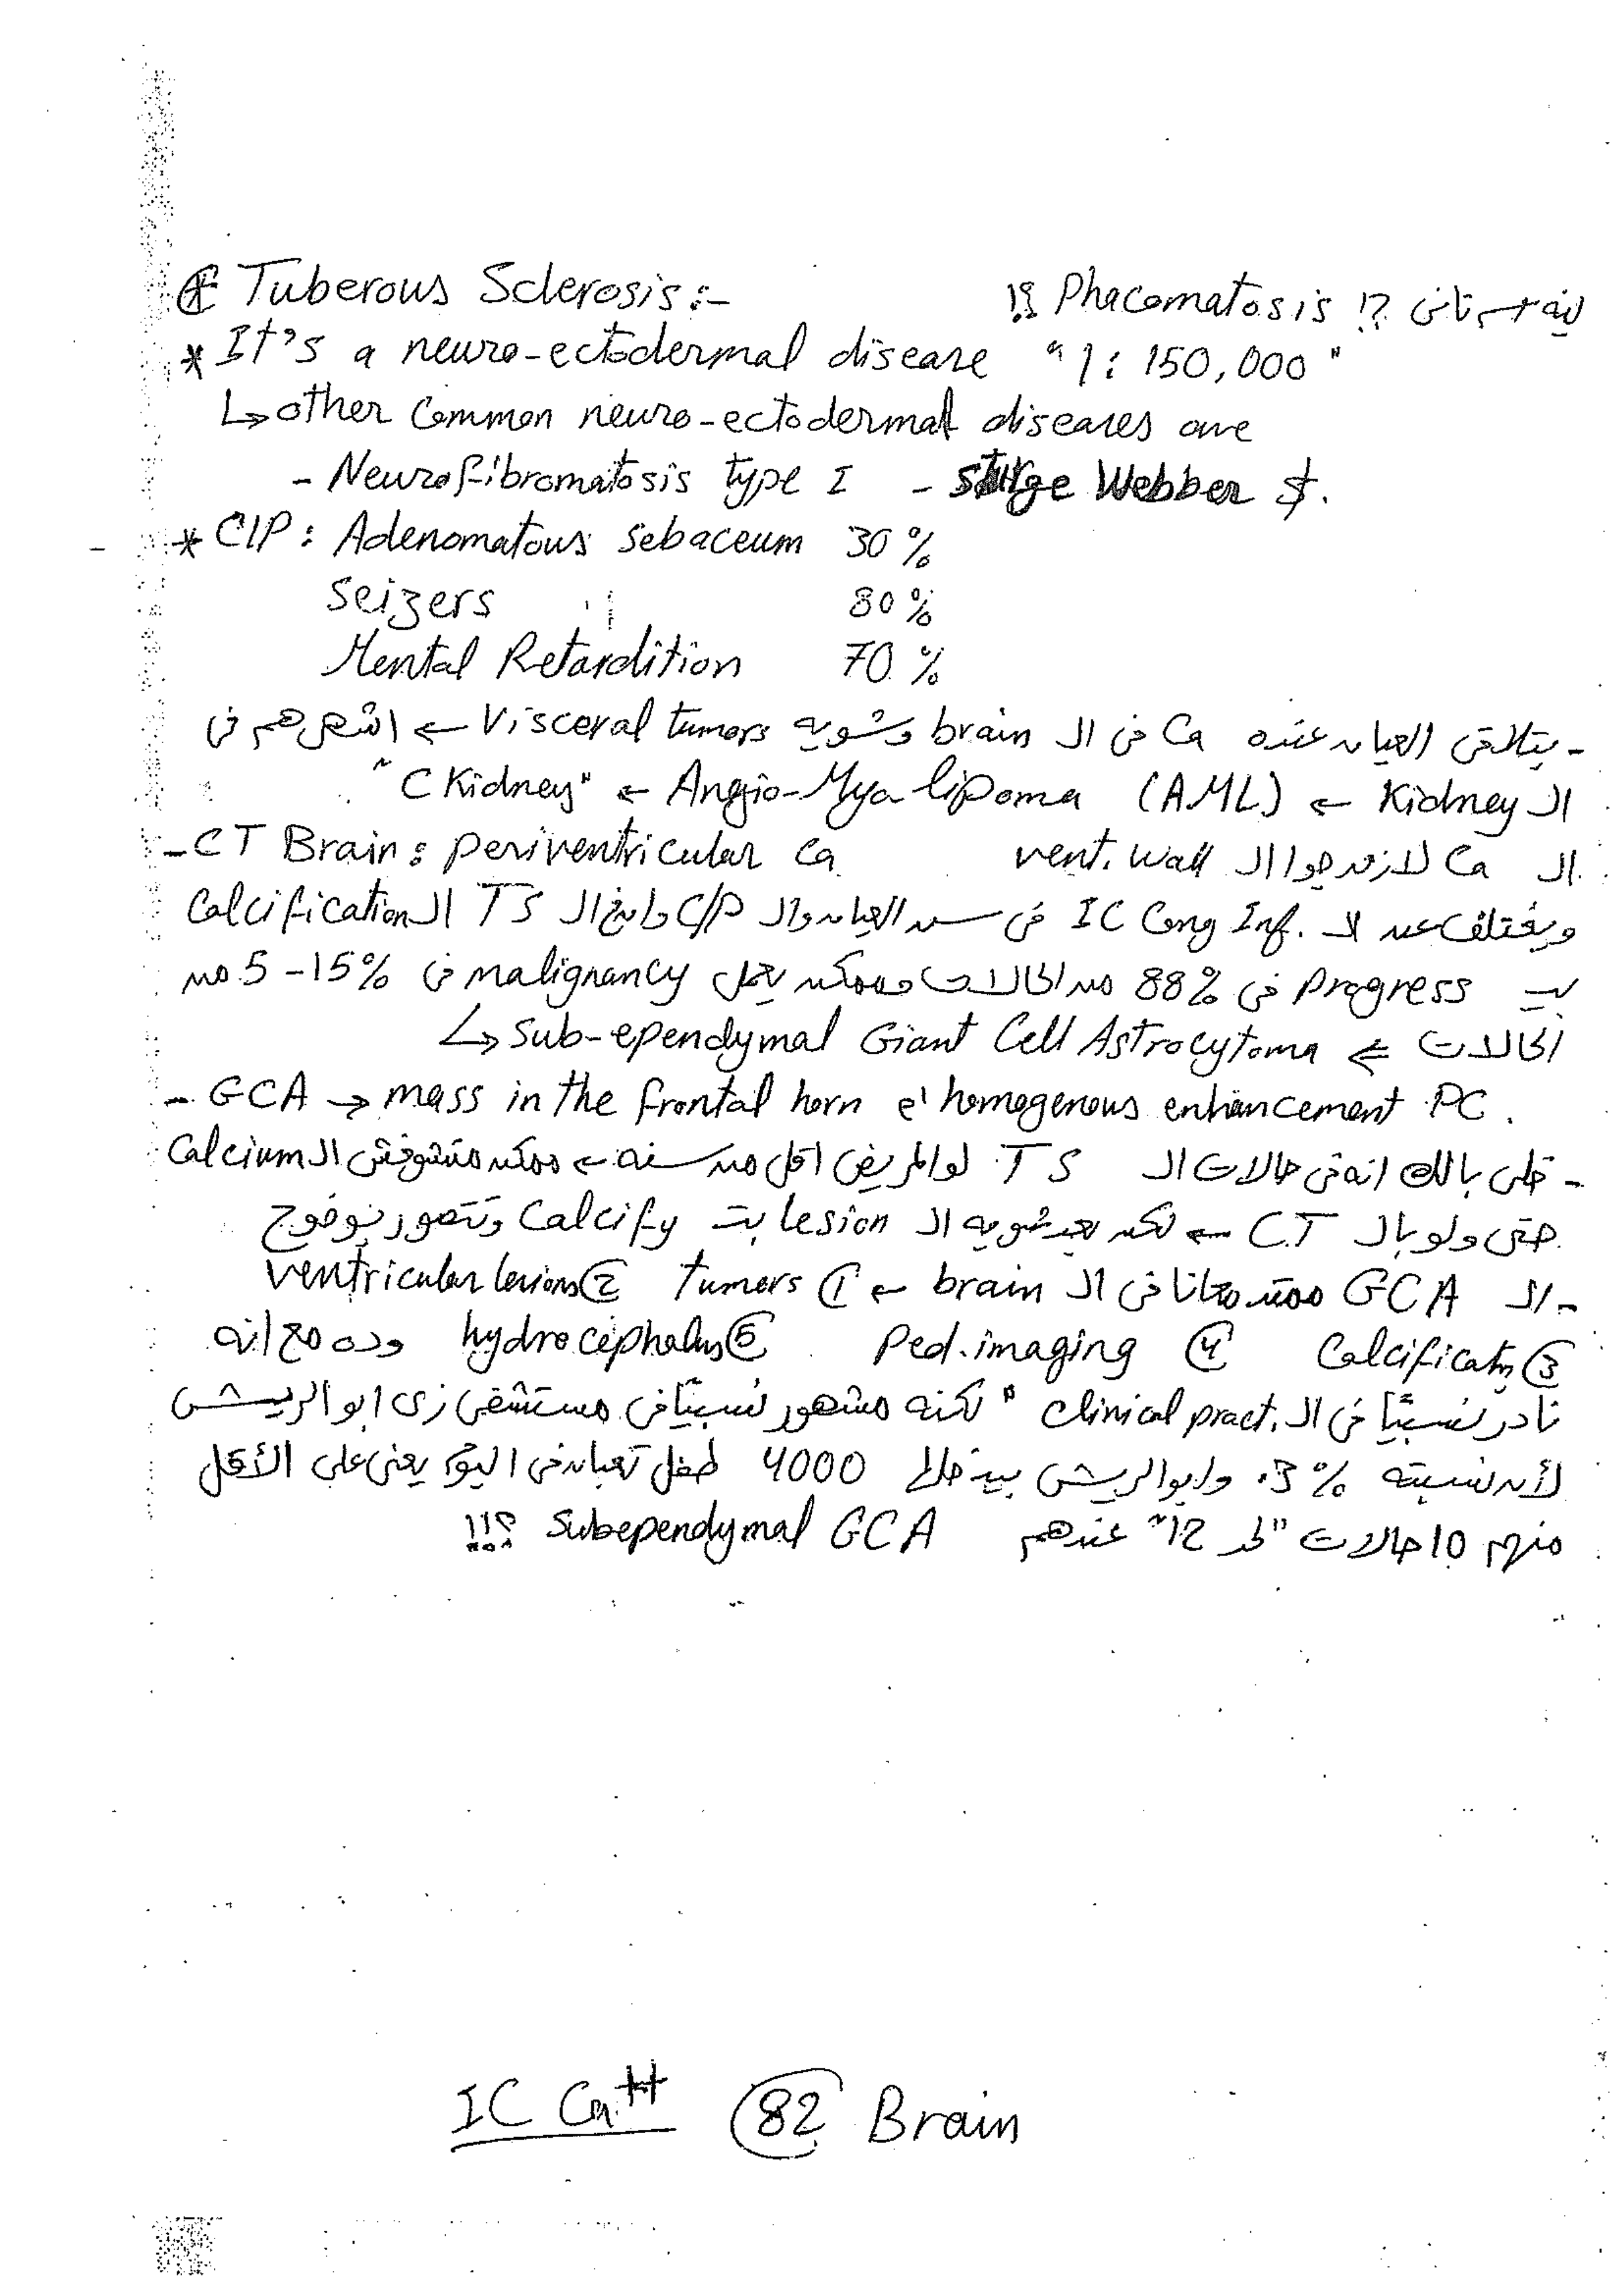 * Tuberous Sclerosis :- ليه اسم تاني ⁉ Phacomatosis ؟!
* It's a neuro-ectodermal disease "1 : 150,000"
↳ other Common neuro-ectodermal diseases are
- Neurofibromatosis type I - Sturge Webber $.
* C/P : Adenomatous sebaceum 30 %
Seizers 80 %
Mental Retardition 70 %
- بتلاقى العيان عنده Ca فى ال brain وشويه Visceral tumors ← اشهرهم فى
ال Kidney ← Angio-Myo-lipoma (AML) ← "C Kidney"
- CT Brain : periventricular Ca ال Ca لازم جوا ال vent. wall
ويختلف عن ال IC Cong Inf. فى سن العيان وال C/P وايضا ال TS ال Calcification
بت Progress فى 88% من الحالات وممكن يعمل malignancy فى 5-15% من
الحالات ⇐ Sub-ependymal Giant Cell Astrocytoma ↲
- GCA → mass in the frontal horn e' homogenous enhancement PC.
- خلى بالك انه فى حالات ال TS لو المريض اقل من سنه ← ممكن متشوفش ال Calcium
حتى ولو بال CT ← لكن بعد شويه ال lesion بت Calcify وتتصور بوضوح
- ال GCA معانا فى ال brain ← ① tumors ② ventricular lesions
③ Calcificatn ④ Ped. imaging ⑤ hydrocephalus وده مع انه
نادر نسبيًا فى ال clinical pract. " لكنه مشهور نسبيًا فى مستشفى زى ابو الريش
لأن نسبته 3% . وابو الريش بيدخلها 4000 طفل تعبان فى اليوم يعنى على الأقل
منهم 10 حالات "لحد 12" عندهم Subependymal GCA ؟!!
IC Ca++ 82 Brain